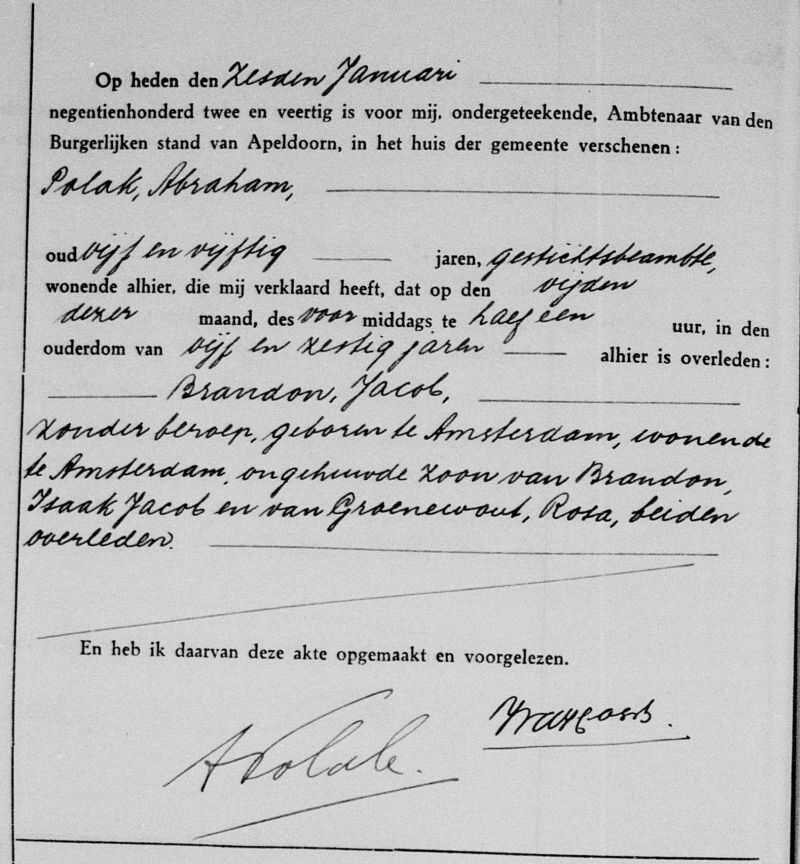 Op heden den zesden Januari
negentienhonderd twee en veertig is voor mij, ondergeteekende, Ambtenaar van den
Burgerlijken stand van Apeldoorn, in het huis der gemeente verschenen :
Polak, Abraham,
oud vijf en vijftig jaren, gestichtsbeambte,
wonende alhier, die mij verklaard heeft, dat op den vijden
dezer maand, des voor middags te half een uur, in den
ouderdom van vijf en zestig jaren alhier is overleden :
Brandon, Jacob,
zonder beroep, geboren te Amsterdam, wonende
te Amsterdam, ongehuwde zoon van Brandon,
Isaak Jacob en van Groenewout, Rosa, beiden
overleden.
En heb ik daarvan deze akte opgemaakt en voorgelezen.
A Polak.